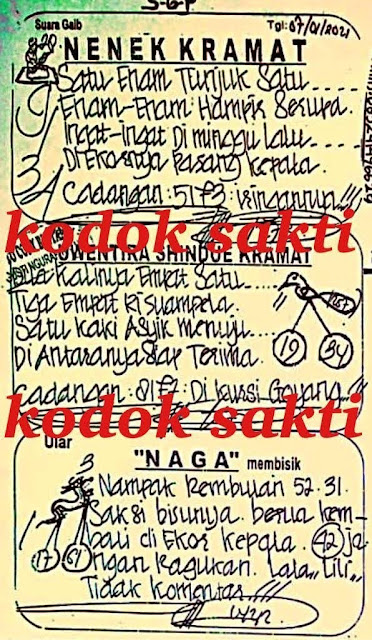 S-G-P
Suara Gaib Tgl: 07/01/2021
NENEK KRAMAT
Satu Enam Tunjuk Satu....
Enam-Enam Hampir Serupa.
Ingat-ingat Di minggu lalu....
Di Ekornya pasang kepala.
Cadangan: 51
kodok sakti
SHINDUE KRAMAT
kalinya Empat Satu....
Tiga Empat
Satu kaki Asyik menuju....
Di Antaranya Siap Terima.
19 34
Cadangan: 81 Di kursi Goyang...!!!
kodok sakti
Ular
"NAGA" membisik
Nampak Rembulan 52.31.
Saksi bisunya. berua kem-
bali di Ekor kepala. 42 ja
ngan Ragukan. Lala,, Lili,,
Tidak komentar...!!!
17 61